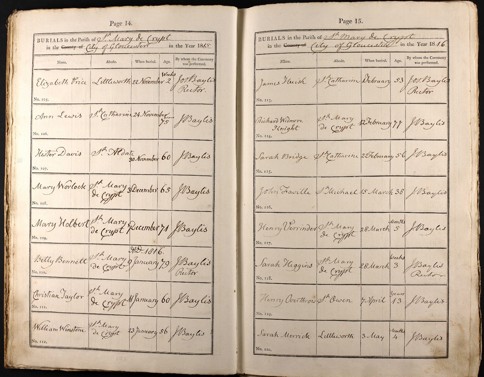 Page 14.
BURIALS in the Parish of St. Mary de Crypt
in the County of City of Gloucester in the Year 181
Name. Abode. When buried. Age. By whom the Ceremony was performed.
Elizabeth Price Littleworth 22 November Weeks 2 Jos Baylis Rector
No.
Ann Lewis St. Catharine 24 November 75 J Baylis
No.
Hester Davis St. Aldate 30 November 60 J Baylis
No.
Mary Worlock St. Mary de Crypt December 65 J Baylis
No.
Mary Holbert St. Mary de Crypt 7 December 71 J Baylis
No.
1816.
Betty Bennett St. Mary de Crypt 9 January 79 J Baylis Rector
No.
Christian Taylor St. Mary de Crypt 11 January 60 J Baylis
No.
William Winstone St. Mary de Crypt January 56 J Baylis
No.
Page 15.
BURIALS in the Parish of St. Mary de Crypt
in the County of City of Gloucester in the Year 1816
Name. Abode. When buried. Age. By whom the Ceremony was performed.
James St. Catharine February 53 Jos Baylis Rector
No.
Richard Widmore Knight St. Mary de Crypt February 77 J Baylis
No.
Sarah Bridge St. Catharine February 56 J Baylis
No.
John St. Michael March 38 J Baylis
No.
Henry Verrinder St. Mary de Crypt March months 5 J Baylis
No.
Sarah Higgins St. Mary de Crypt 28 March weeks 3 J Baylis Rector
No.
Henry St. Owen 7 April 13 J Baylis
No.
Sarah Merrick Littleworth 3 May months 4 J Baylis
No.